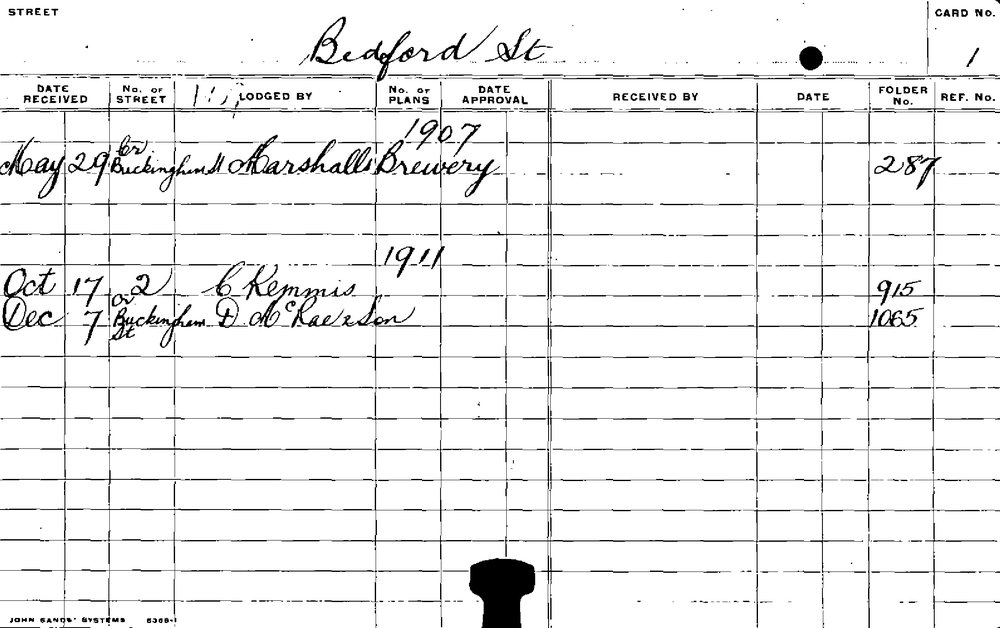 STREET Bedford St CARD No. 1
DATE RECEIVED No. OF STREET LODGED BY No. OF PLANS DATE APPROVAL RECEIVED BY DATE FOLDER No. REF. No.
1907
May 29 Cr Buckingham St Marshalls Brewery 287
1911
Oct 17 2 C Kemmis 915
Dec 7 Cr Buckingham St D McRae & Son 1065
JOHN SANDS' SYSTEMS